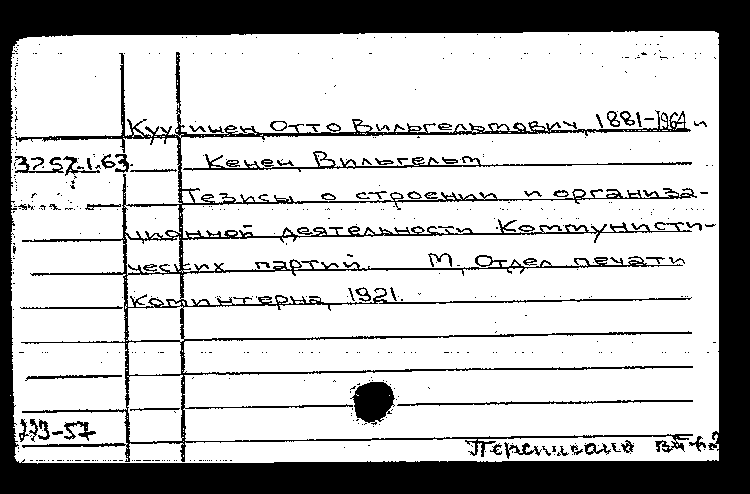 Куусинен, Отто Вильгельмович, 1881-1964 и
3252.1.63. Кенен, Вильгельм.
Тезисы о строении и организа-
ционной деятельности Коммунисти-
ческих партий. М, Отдел печати
Коминтерна, 1921.
229-57
Переписано